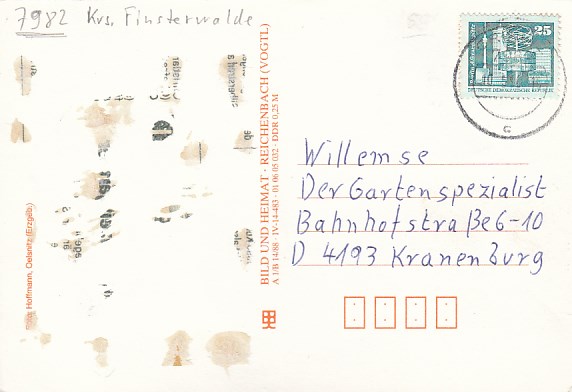 7982 Krs. Finsterwalde
25
DEUTSCHE DEMOKRATISCHE REPUBLIK
BILD UND HEIMAT · REICHENBACH (VOGTL)
A 1/B 14/88 · IV-14-483 · 01 06 05 032 · DDR 0,25 M
Hoffmann, Oelsnitz (Erzgeb.)
Willemse
Der Gartenspezialist
Bahnhofstraße 6-10
D 4193 Kranenburg